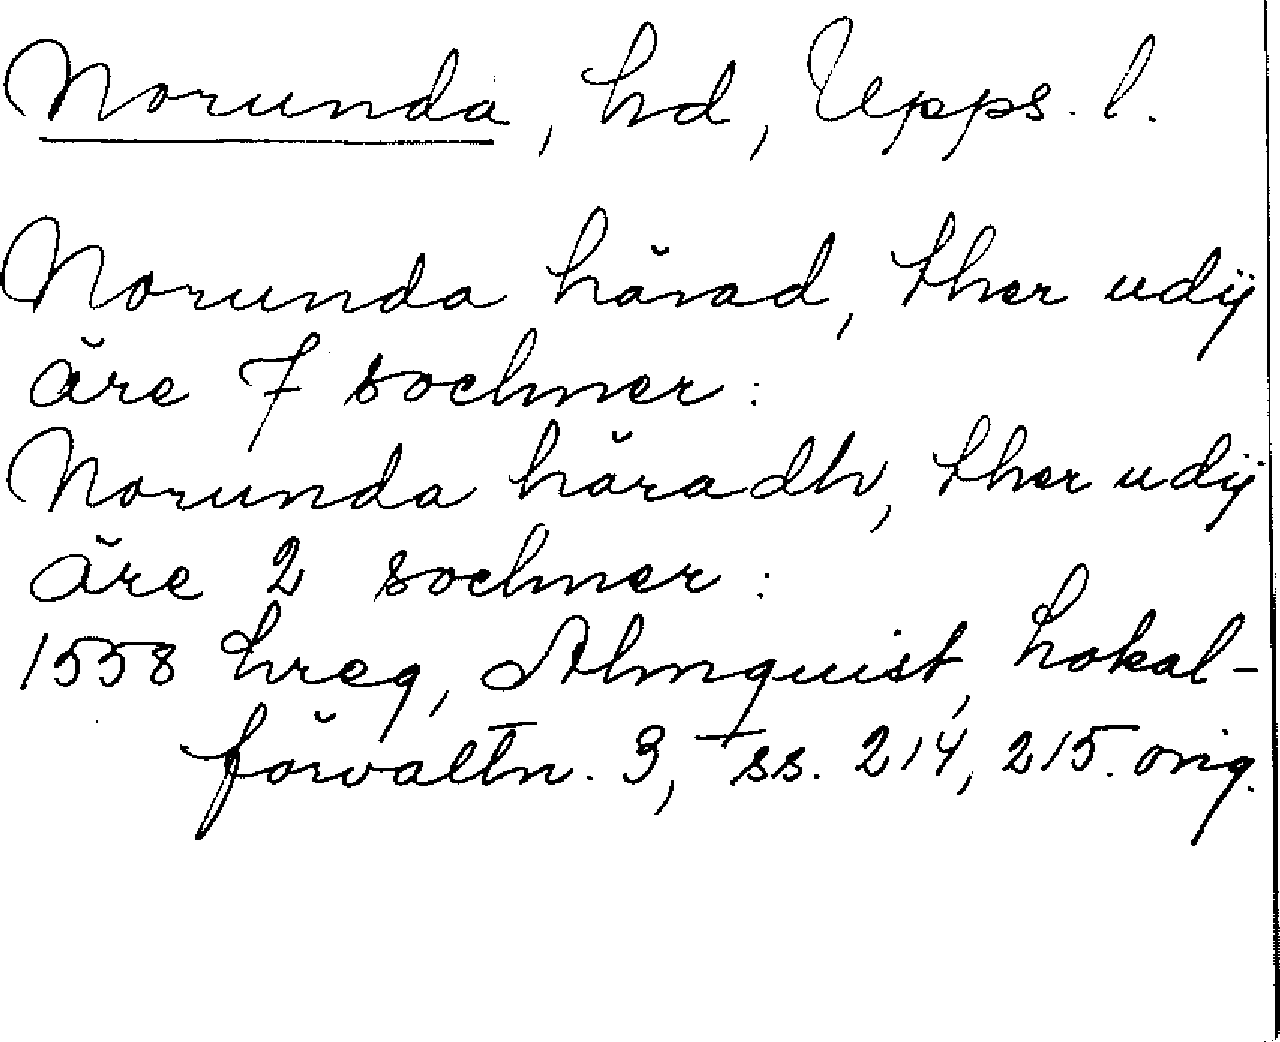 Norunda, hd, Upps. l.
Norunda härad, ther udij
äre 7 sochner:
Norunda häradh, ther udij
äre 2 sochner:
1558 hreg, Almquist, Lokal-
förvaltn. 3, ss. 214, 215. orig.